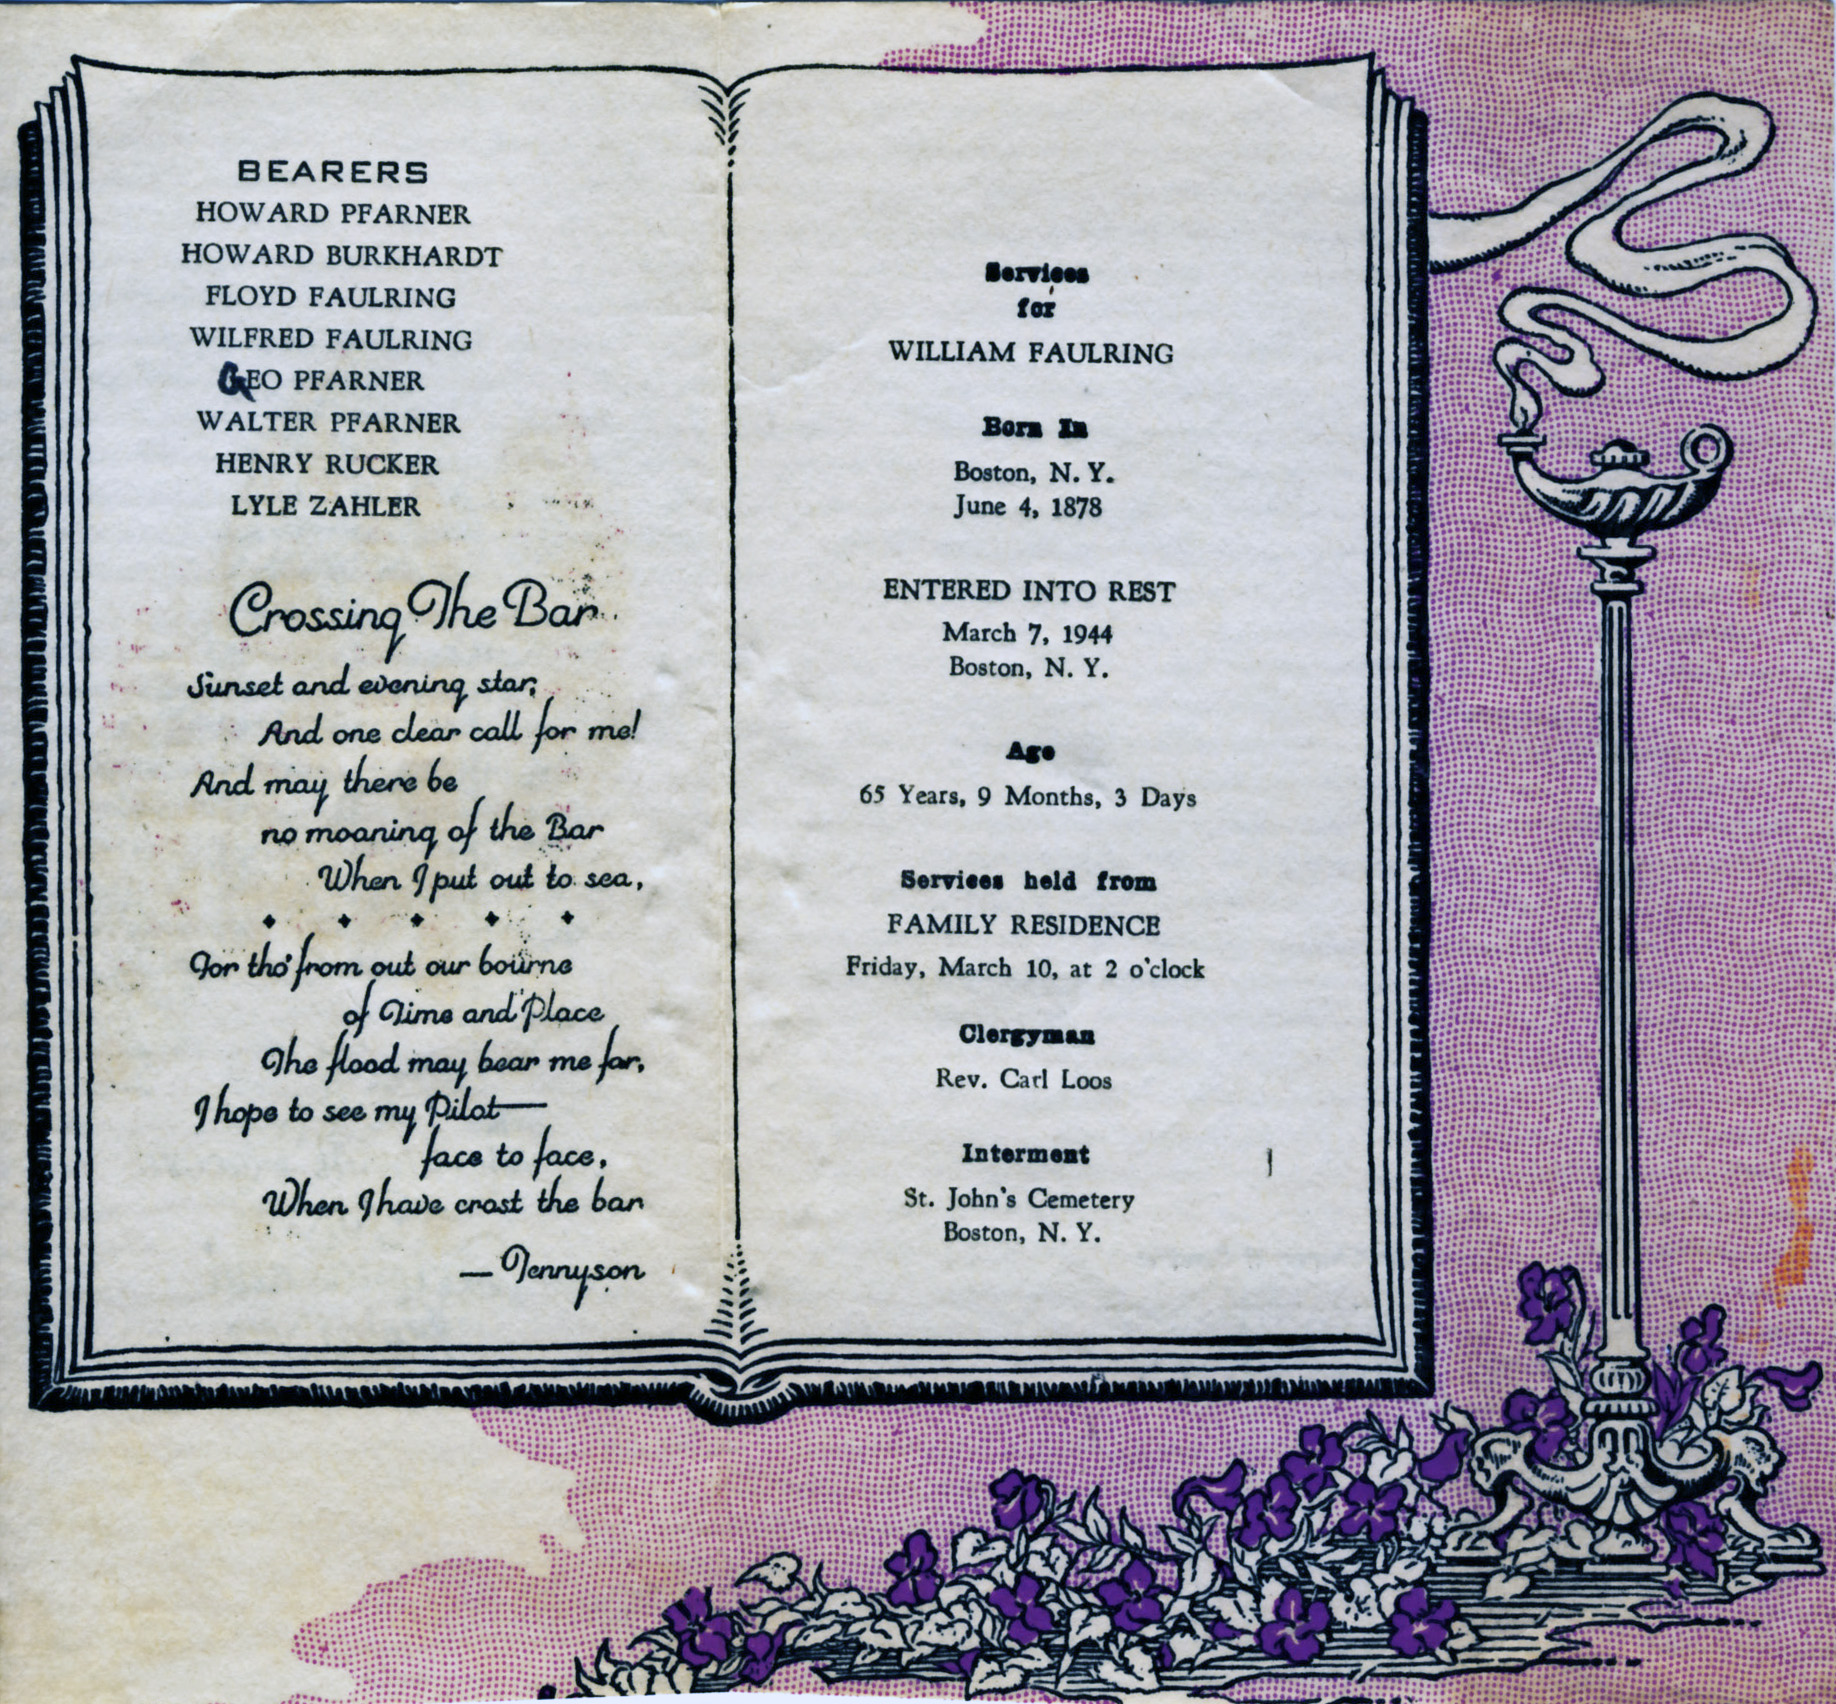 BEARERS
HOWARD PFARNER
HOWARD BURKHARDT
FLOYD FAULRING
WILFRED FAULRING
GEO PFARNER
WALTER PFARNER
HENRY RUCKER
LYLE ZAHLER
Crossing The Bar
Sunset and evening star,
And one clear call for me!
And may there be
no moaning of the Bar
When I put out to sea,
For tho' from out our bourne
of Time and Place
The flood may bear me far,
I hope to see my Pilot—
face to face,
When I have crost the bar
— Tennyson
Services
for
WILLIAM FAULRING
Born In
Boston, N. Y.
June 4, 1878
ENTERED INTO REST
March 7, 1944
Boston, N. Y.
Age
65 Years, 9 Months, 3 Days
Services held from
FAMILY RESIDENCE
Friday, March 10, at 2 o'clock
Clergyman
Rev. Carl Loos
Interment
St. John's Cemetery
Boston, N. Y.